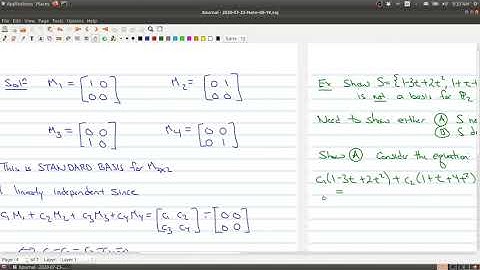 Applications Places
Xournal - 2020-07-23-Note-09-19.xoj
File Edit View Journal Tools Options Help
Sans 12
Sol=
M₁ = [1 0
0 0]
M₂ = [0 1
0 0]
M₃ = [0 0
1 0]
M₄ = [0 0
0 1]
This is STANDARD BASIS for M₂ₓ₂
linearly independent since
c₁M₁ + c₂M₂ + c₃M₃ + c₄M₄ = [c₁ c₂
c₃ c₄] = [0 0
0 0]
Ex Show S={1-3t+2t², 1+t+
is not a basis for P₂
Need to show either (A) S n
(B) S d
Show (A) Consider the equation
c₁(1-3t+2t²) + c₂(1+t+4t²)
=
Page
of 7
Layer: Layer 1